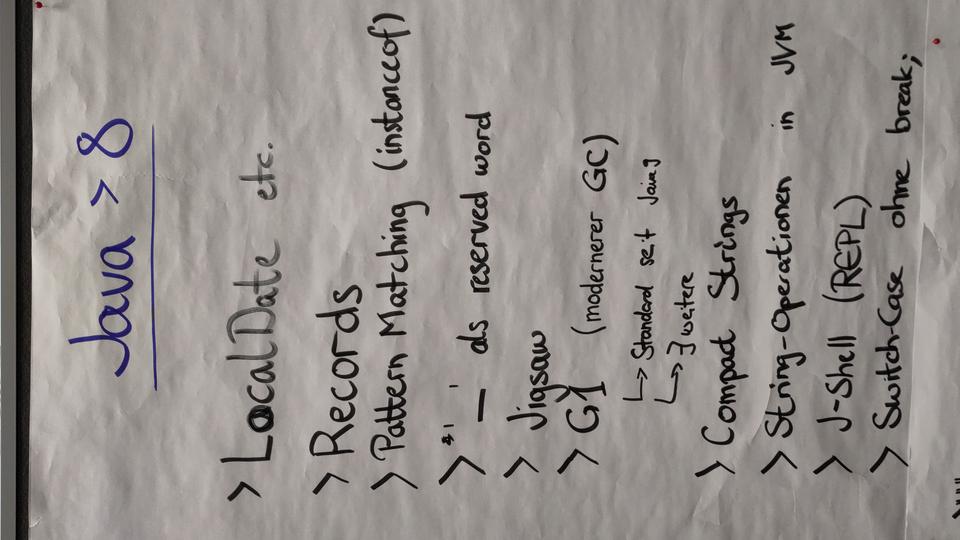 Java > 8
> LocalDate etc.
> Records
> Pattern Matching (instanceof)
> '_' als reserved word
> Jigsaw
> G1 (modernerer GC)
↳ Standard seit Java 9
↳ ∃ weitere
> Compact Strings
> String-Operationen in JVM
> J-Shell (REPL)
> Switch-Case ohne break;